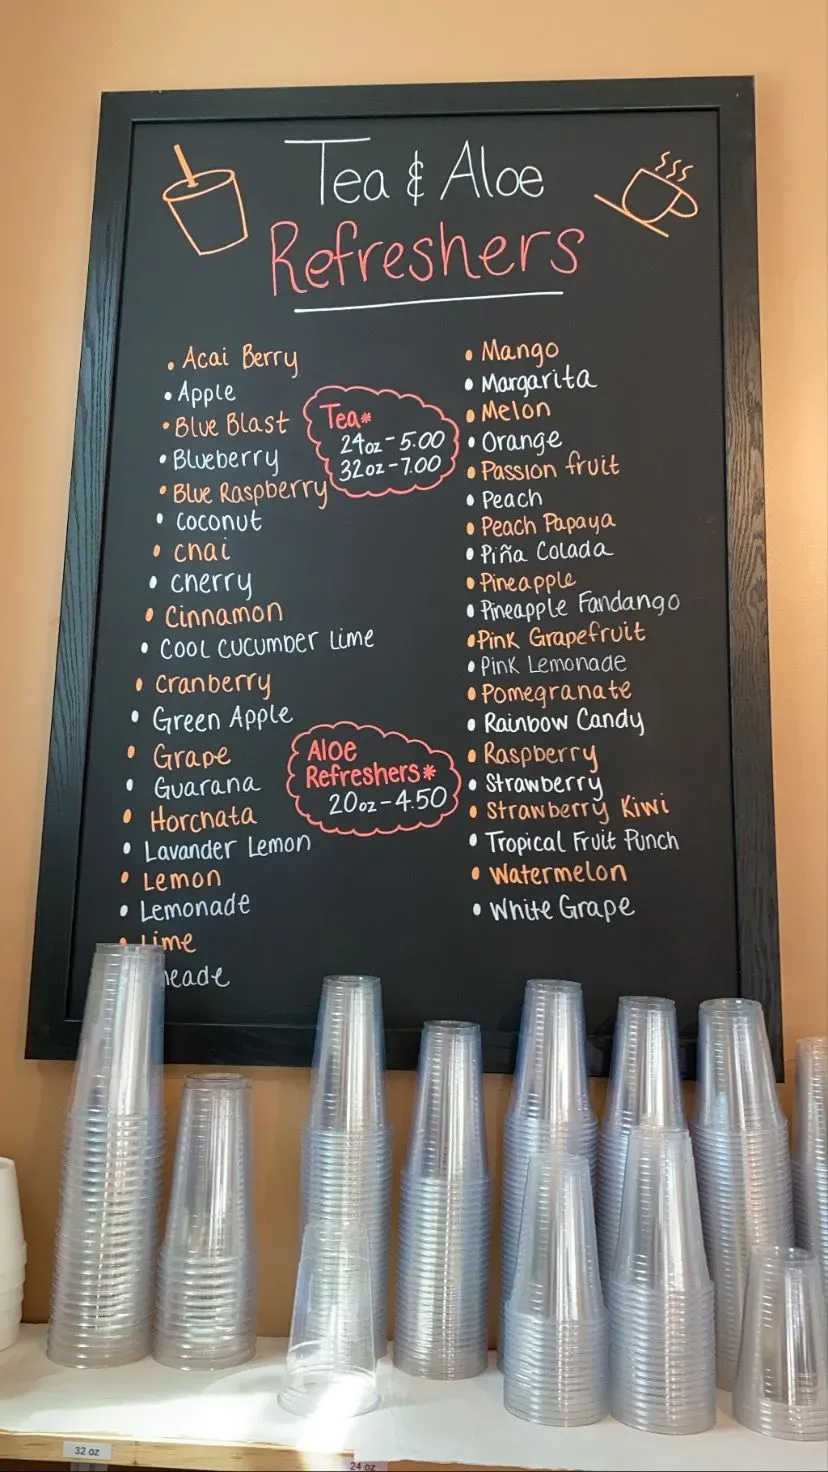 Tea & Aloe
Refreshers
• Acai Berry
• Apple
• Blue Blast
• Blueberry
• Blue Raspberry
• Coconut
• chai
• cherry
• Cinnamon
• COOL CUCUMBER Lime
• cranberry
• Green Apple
• Grape
• Guarana
• Horchata
• Lavander Lemon
• Lemon
• Lemonade
• Lime
Tea*
24oz-5.00
32oz-7.00
Aloe
Refreshers*
20oz-4.50
• Mango
• Margarita
• Melon
• Orange
• Passion fruit
• Peach
• Peach Papaya
• Piña Colada
• Pineapple
• Pineapple Fandango
• Pink Grapefruit
• Pink Lemonade
• Pomegranate
• Rainbow Candy
• Raspberry
• Strawberry
• Strawberry Kiwi
• Tropical Fruit Punch
• Watermelon
• White Grape
32 oz
24 oz